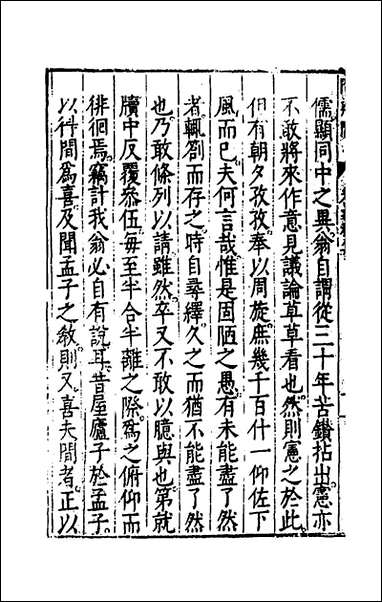 儒顯同中之異翁自謂從三十年苦鑽拈出憲亦
不敢將來作意見議論草草看也然則憲之於此
但有朝夕孜孜奉以周旋庶幾千百什一仰佐下
風而已夫何言哉惟是固陋之愚有未能盡了然
者輒劄而存之時自尋繹久之而猶不能盡了然
也乃敢條列以請雖然卒又不敢以臆與也第就
牘中反覆參伍毎至半合半離之際爲之俯仰而
徘徊焉竊計我翁必自有說耳昔屋廬子於孟子
以得間爲喜及聞孟子之敘則又喜夫間者正以